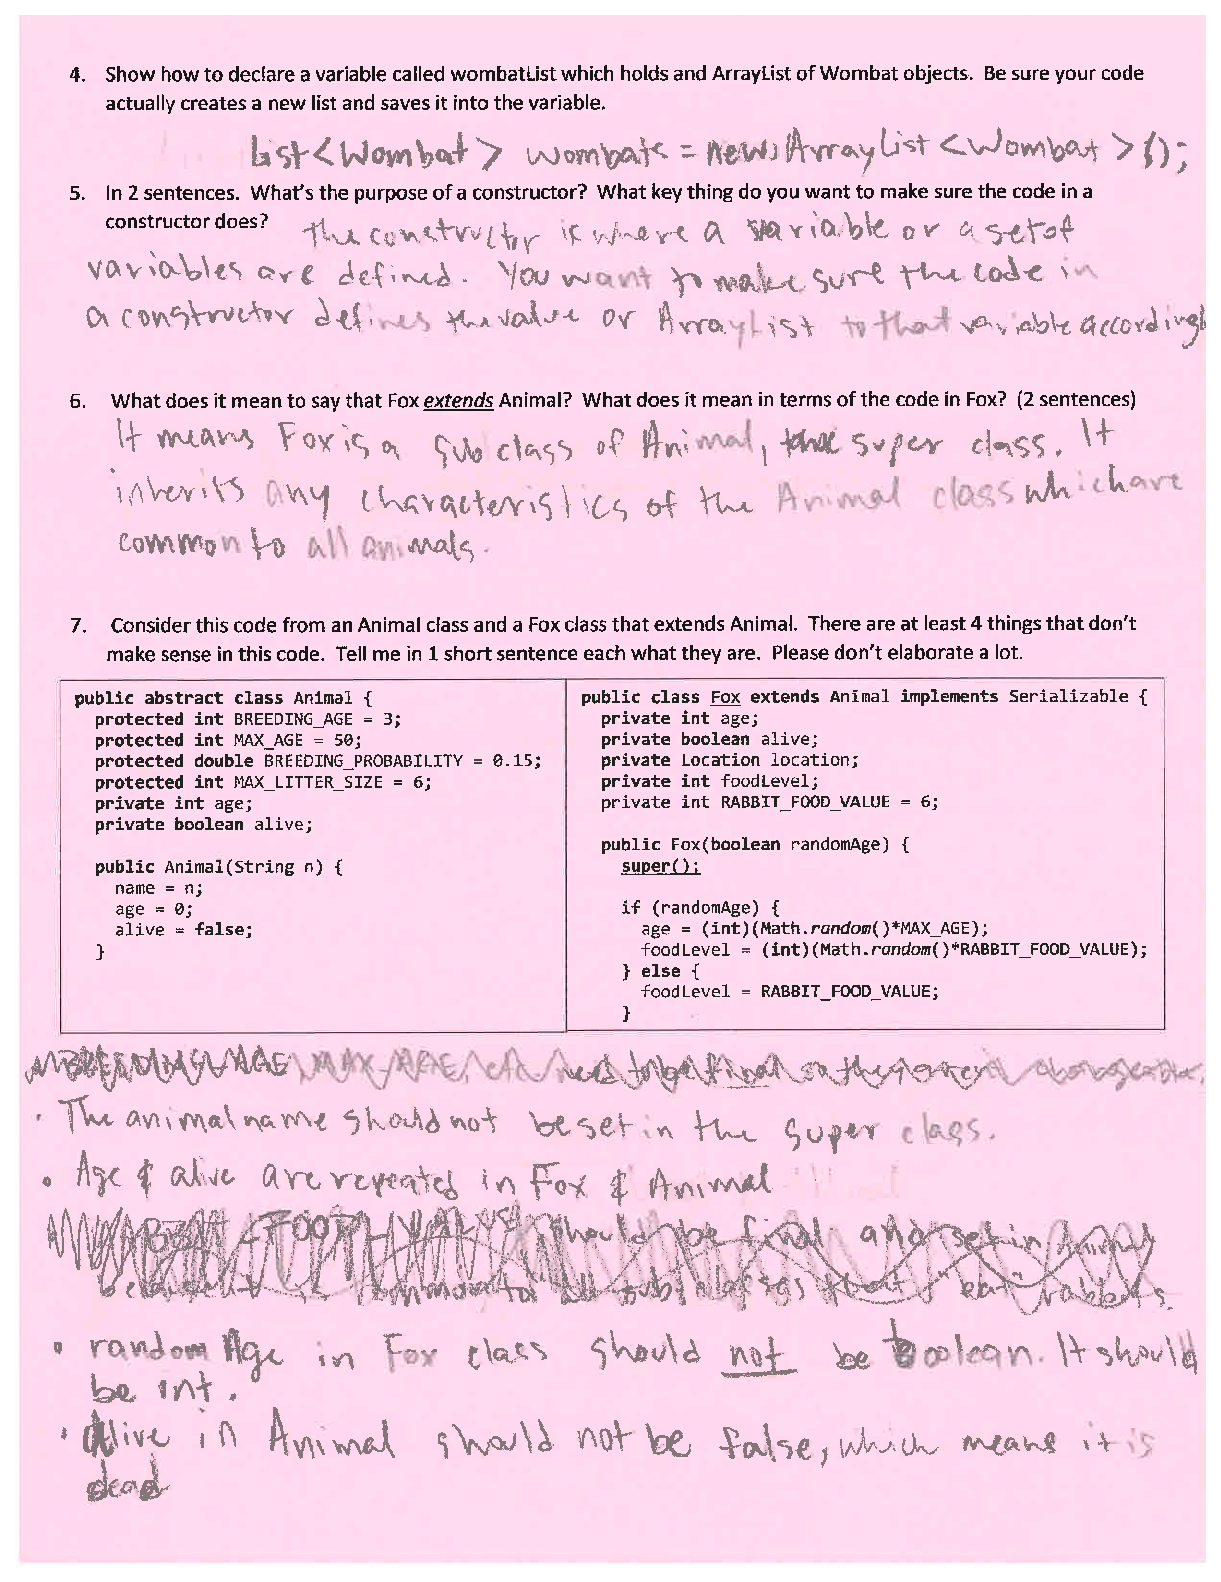 4. Show how to declare a variable called wombatList which holds and ArrayList of Wombat objects. Be sure your code
actually creates a new list and saves it into the variable.
List<Wombat> wombats = new ArrayList<Wombat>();
5. In 2 sentences. What's the purpose of a constructor? What key thing do you want to make sure the code in a
constructor does? The constructor is where a variable or a set of
variables are defined. You want to make sure the code in
a constructor defines the value or ArrayList to that variable accordingly
6. What does it mean to say that Fox extends Animal? What does it mean in terms of the code in Fox? (2 sentences)
It means Fox is a sub class of Animal, the super class. It
inherits any characteristics of the Animal class which are
common to all animals.
7. Consider this code from an Animal class and a Fox class that extends Animal. There are at least 4 things that don't
make sense in this code. Tell me in 1 short sentence each what they are. Please don't elaborate a lot.
public abstract class Animal {
protected int BREEDING_AGE = 3;
protected int MAX_AGE = 50;
protected double BREEDING_PROBABILITY = 0.15;
protected int MAX_LITTER_SIZE = 6;
private int age;
private boolean alive;
public Animal(String n) {
name = n;
age = 0;
alive = false;
}
public class Fox extends Animal implements Serializable {
private int age;
private boolean alive;
private Location location;
private int foodLevel;
private int RABBIT_FOOD_VALUE = 6;
public Fox(boolean randomAge) {
super();
if (randomAge) {
age = (int)(Math.random()*MAX_AGE);
foodLevel = (int)(Math.random()*RABBIT_FOOD_VALUE);
} else {
foodLevel = RABBIT_FOOD_VALUE;
}
MAX_AGE, etc need to be final so they aren't changeable.
• The animal name should not be set in the super class.
• Age & alive are repeated in Fox & Animal
should be final and set in Animal
subclasses that "eat" rabbits.
• random Age in Fox class should not be boolean. It should
be int.
• Alive in Animal should not be false, which means it is
dead